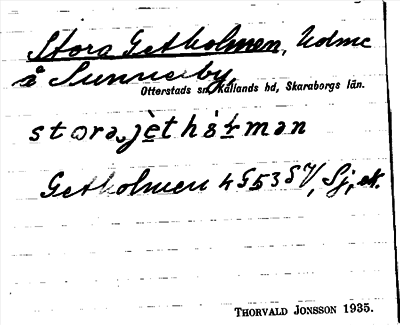 Stora Getholmen, Udmc
å Sunnerby,
Otterstads sn, Kållands hd, Skaraborgs län.
Getholmen 4 G5 3 S V, Sj, ek.
THORVALD JONSSON 1935.